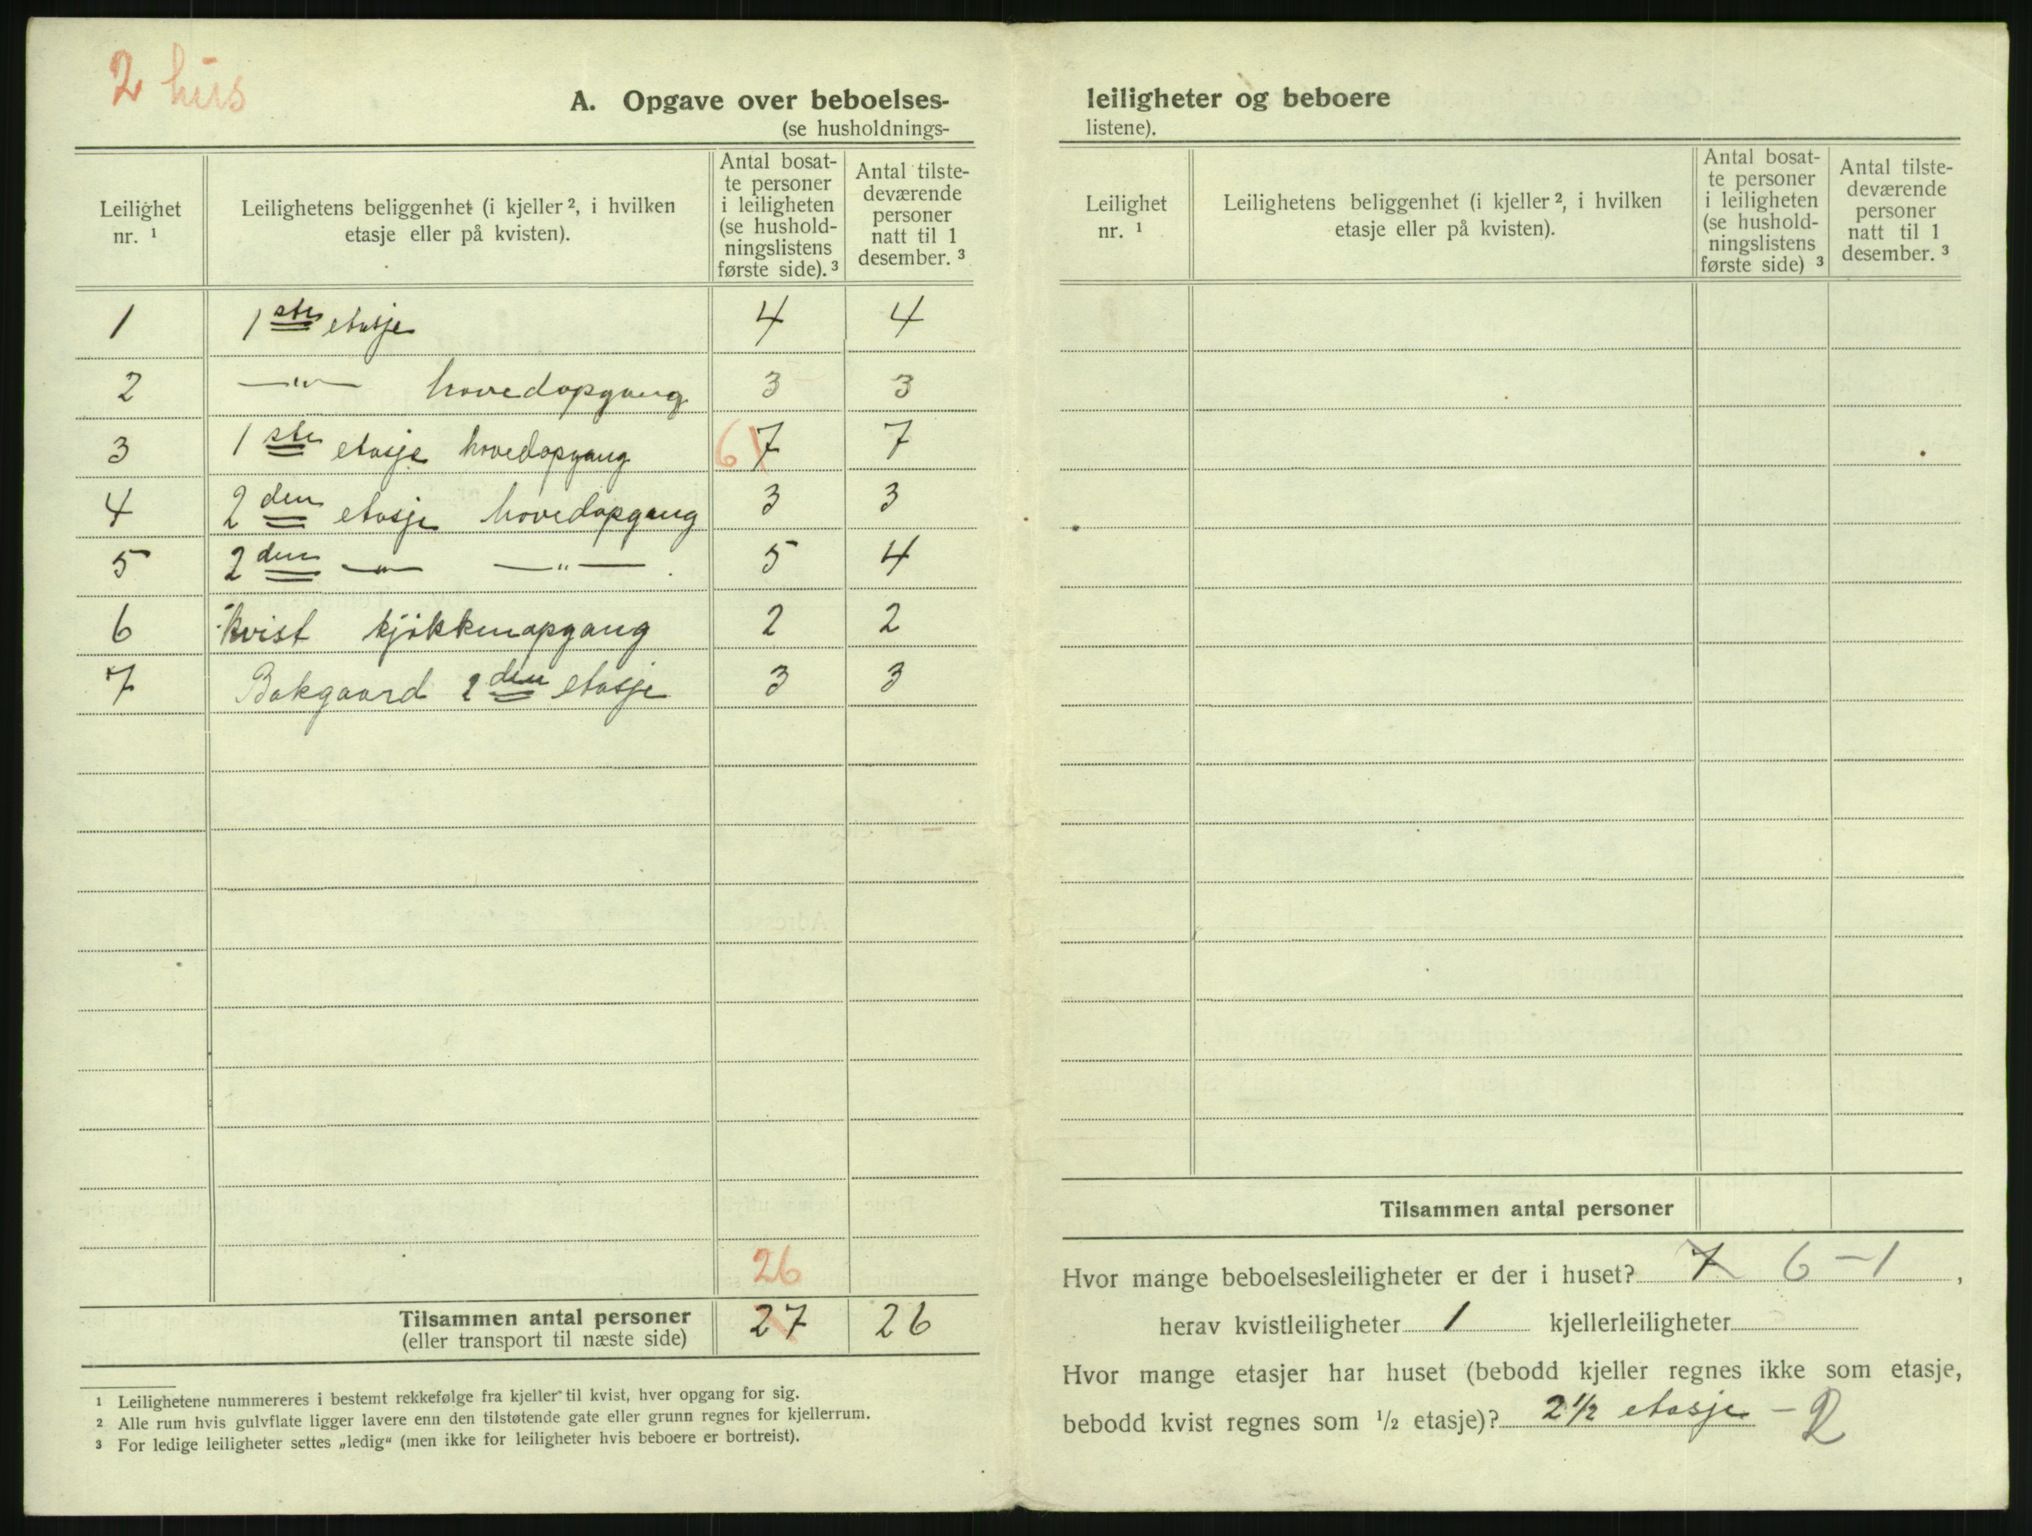 2 hus
A. Opgave over beboelses- leiligheter og beboere
(se husholdnings- listene).
Leilighet nr. ¹ | Leilighetens beliggenhet (i kjeller ², i hvilken etasje eller på kvisten). | Antal bosat-te personer i leiligheten (se hushold-ningslistens første side). ³ | Antal tilste-deværende personer natt til 1 desember. ³
1 | 1ste etasje | 4 | 4
2 | —"— hovedopgang | 3 | 3
3 | 1ste etasje hovedopgang | 6 7 | 7
4 | 2den etasje hovedopgang | 3 | 3
5 | 2den —"— —"— . | 5 | 4
6 | kvist kjøkkenopgang | 2 | 2
7 | Bakgaard 2den etasje | 3 | 3
26
Tilsammen antal personer | 27 | 26
(eller transport til næste side)
¹ Leilighetene nummereres i bestemt rekkefølge fra kjeller til kvist, hver opgang for sig.
² Alle rum hvis gulvflate ligger lavere enn den tilstøtende gate eller grunn regnes for kjellerrum.
³ For ledige leiligheter settes „ledig“ (men ikke for leiligheter hvis beboere er bortreist).
Leilighet nr. ¹ | Leilighetens beliggenhet (i kjeller ², i hvilken etasje eller på kvisten). | Antal bosat-te personer i leiligheten (se hushold-ningslistens første side) ³ | Antal tilste-deværende personer natt til 1 desember. ³
Tilsammen antal personer
Hvor mange beboelsesleiligheter er der i huset? 7 6 – 1 ,
herav kvistleiligheter 1 kjellerleiligheter
Hvor mange etasjer har huset (bebodd kjeller regnes ikke som etasje,
bebodd kvist regnes som ½ etasje)? 2 ½ etasje – 2